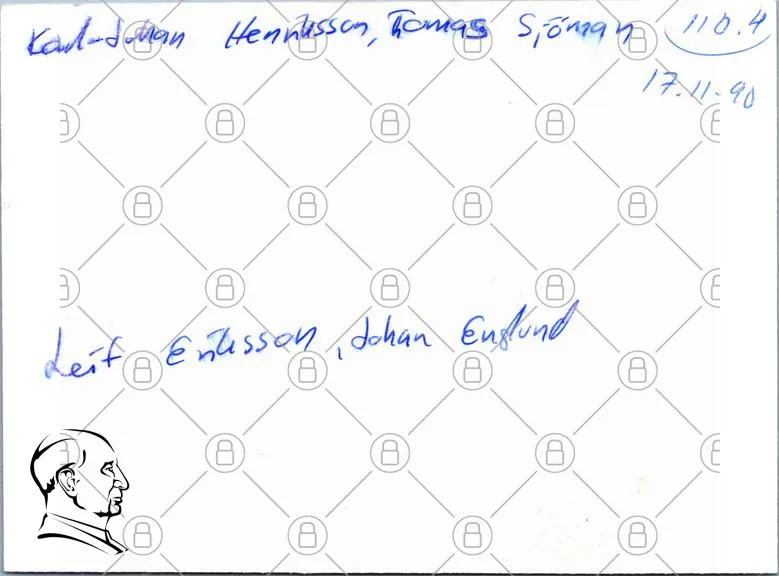 Karl-Johan Henriksson, Thomas Sjöman 110.4
17.11.90
Leif Eriksson, Johan Englund